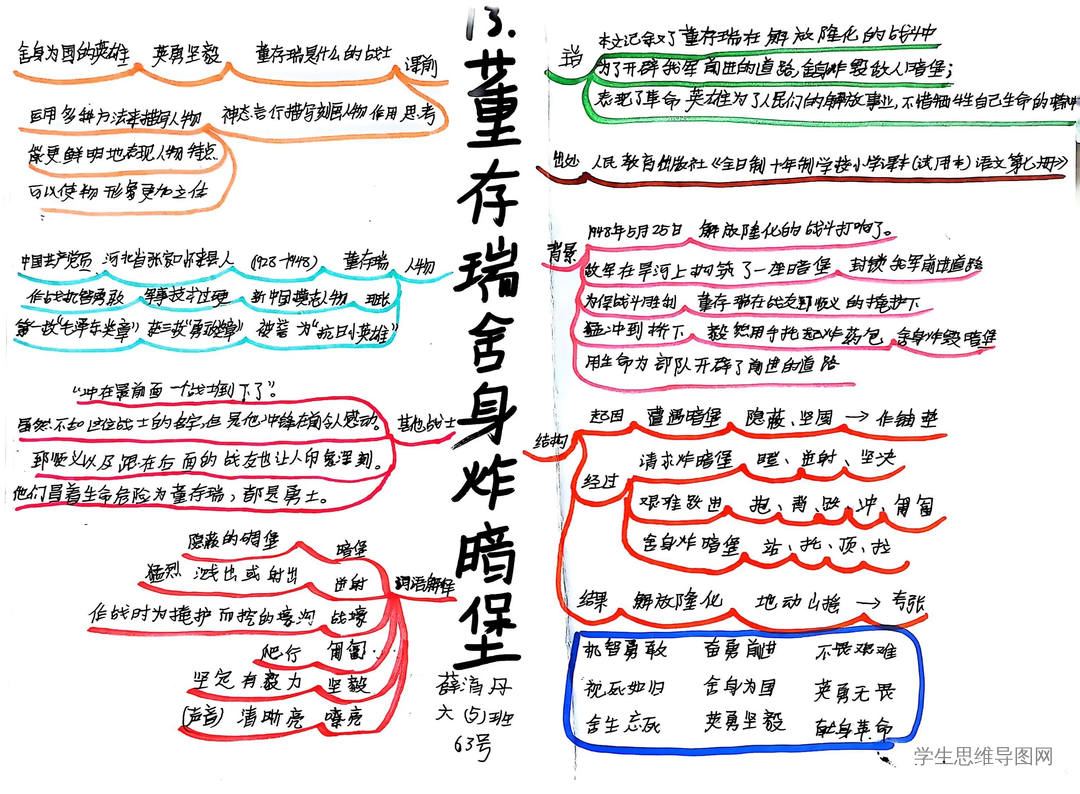 13.董存瑞舍身炸暗堡
课前
董存瑞是什么的战士 英勇坚毅 舍身为国的英雄
思考
神态言行描写刻画人物作用
运用多种方法来描写人物
能更鲜明地表现人物特点
可以使物形象更加立体
人物
董存瑞 (1928-1948) 河北省张家口怀来县人 中国共产党员
现状 新中国模范人物 军事技术过硬 作战机智勇敢
被誉为"抗日小英雄"
其他战士
"冲在最前面一个战士倒下了"。
虽然不知这位战士的名字,但是他冲锋在前令人感动。
郅顺义以及跟在后面的战友也让人印象深刻。
他们冒着生命危险为董存瑞,都是勇士。
词语解释
暗堡 隐蔽的碉堡
迸射 猛烈 溅出或射出
战壕 作战时为掩护而挖的壕沟
匍匐 爬行
坚毅 坚定有毅力
嘹亮 (声音)清晰亮
薛清丹
六(5)班
63号
本文记叙了董存瑞在解放隆化的战斗中
为了开辟我军前进的道路,舍身炸毁敌人暗堡;
表现了革命英雄为了人民们的解放事业,不惜牺牲自己生命的精神
出处 人民教育出版社《全日制十年制学校小学课本(试用本)语文第七册》
背景
1948年5月25日 解放隆化的战斗打响了。
敌军在旱河上构筑了一座暗堡 封锁我军前进道路
为保战斗胜利 董存瑞在战友郅顺义的掩护下
猛冲到桥下 毅然用手托起炸药包 舍身炸毁暗堡
用生命为部队开辟了前进的道路
结构
起因 遭遇暗堡 隐蔽、坚固 → 作铺垫
经过
请求炸暗堡 瞪、迸射、坚决
艰难跃进 抱、夹、跃、冲、匍匐
舍身炸暗堡 站、托、顶、拉
结果 解放隆化 地动山摇 → 夸张
机智勇敢 奋勇前进 不畏艰难
视死如归 舍身为国 英勇无畏
舍生忘死 英勇坚毅 献身革命
学生思维导图网